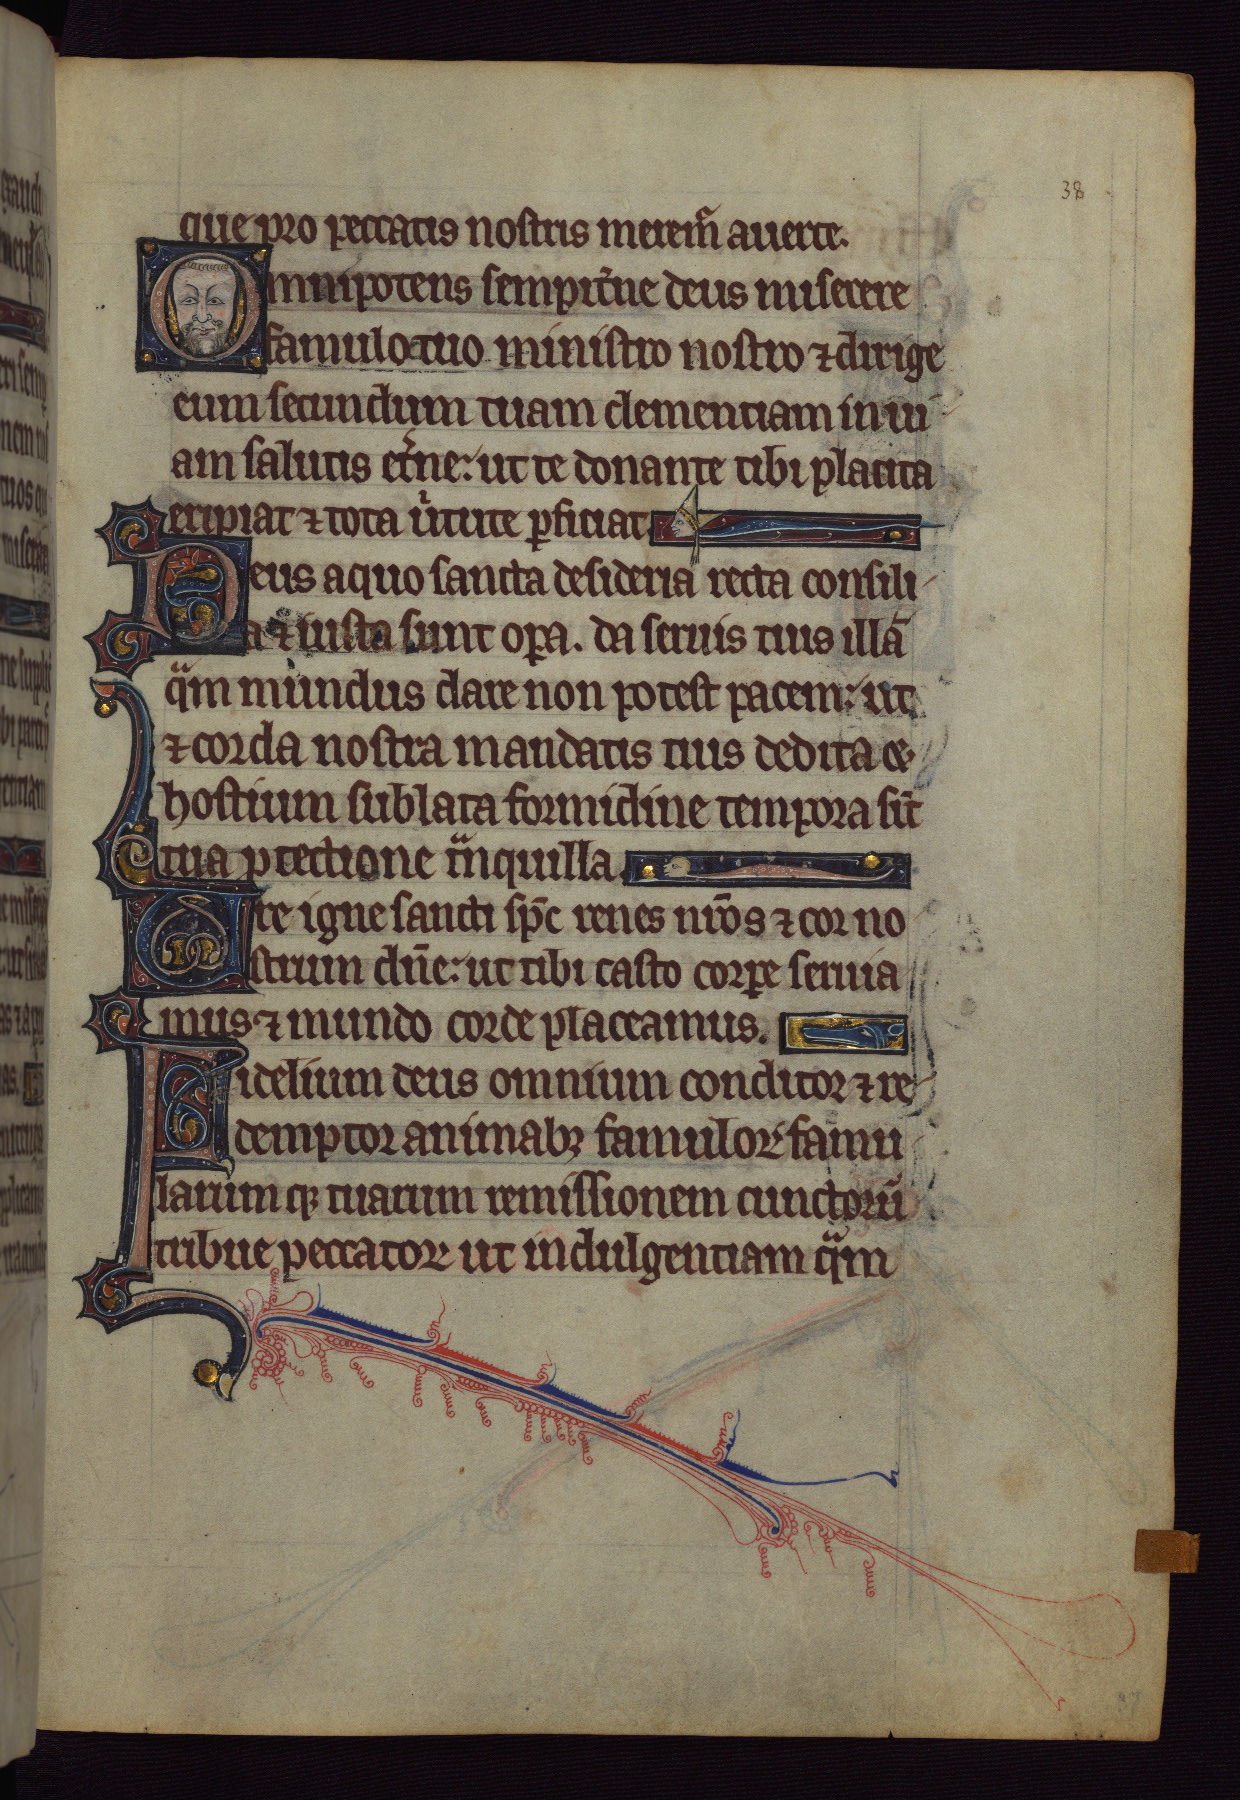 38
que pro peccatis nostris merem̃ auerte.
Omnipotens sempit̾ne deus miserere
famulo tuo ministro nostro ⁊ dirige
eum secundum tuam clementiam in ui
am salutis et̾ne: ut te donante tibi placita
eripiat ⁊ tota ũtute ꝑficiat
Deus a quo sancta desideria recta consili
a ⁊ iusta sunt oꝑa. da seruis tuis illã
qᷓm mundus dare non potest pacem: ut
⁊ corda nostra mandatis tuis dedita ⁊
hostium sublata formidine tempora sĩt
tua ꝓtectione tᷓnquilla.
Ure igne sancti sp̃c renes nr̃os ⁊ cor no
strum dñe: ut tibi casto corꝑe seruia
mus ⁊ mundo corde placeamus.
Fidelium deus omnium conditor ⁊ re
demptor animabꝫ famuloꝝ famu
larum qꝫ tuarum remissionem cunctorũ
tribue peccatoꝝ ut indulgentiam qᷓm
37